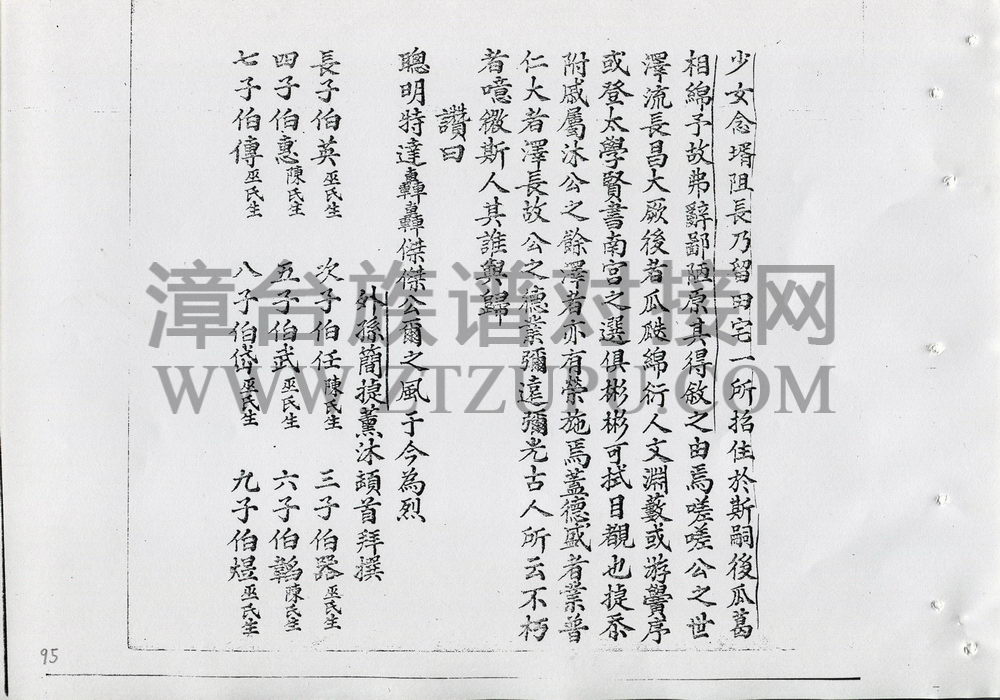 少女念壻阻長乃留田宅一所招住於斯嗣後瓜葛
相綿予故弗辭鄙陋原其得敘之由焉嗟嗟公之世
澤流長昌大厥後者瓜瓞綿衍人文淵藪或游黌序
或登太學賢書南宮之選俱彬彬可拭目覩也㨗忝
附戚屬沐公之餘澤者亦有榮施焉蓋德盛者業普
仁大者澤長故公之德業彌遠彌光古人所云不朽
者噫微斯人其誰與歸
讚曰
聰明特達轟轟傑傑公爾之風于今為烈
外孫簡㨗薰沐頓首拜撰
長子伯英巫氏生 次子伯任陳氏生 三子伯器巫氏生
四子伯惠陳氏生 五子伯武巫氏生 六子伯韜陳氏生
七子伯傳巫氏生 八子伯岱巫氏生 九子伯煜巫氏生
漳台族谱对接网
WWW.ZTZUPU.COM
95